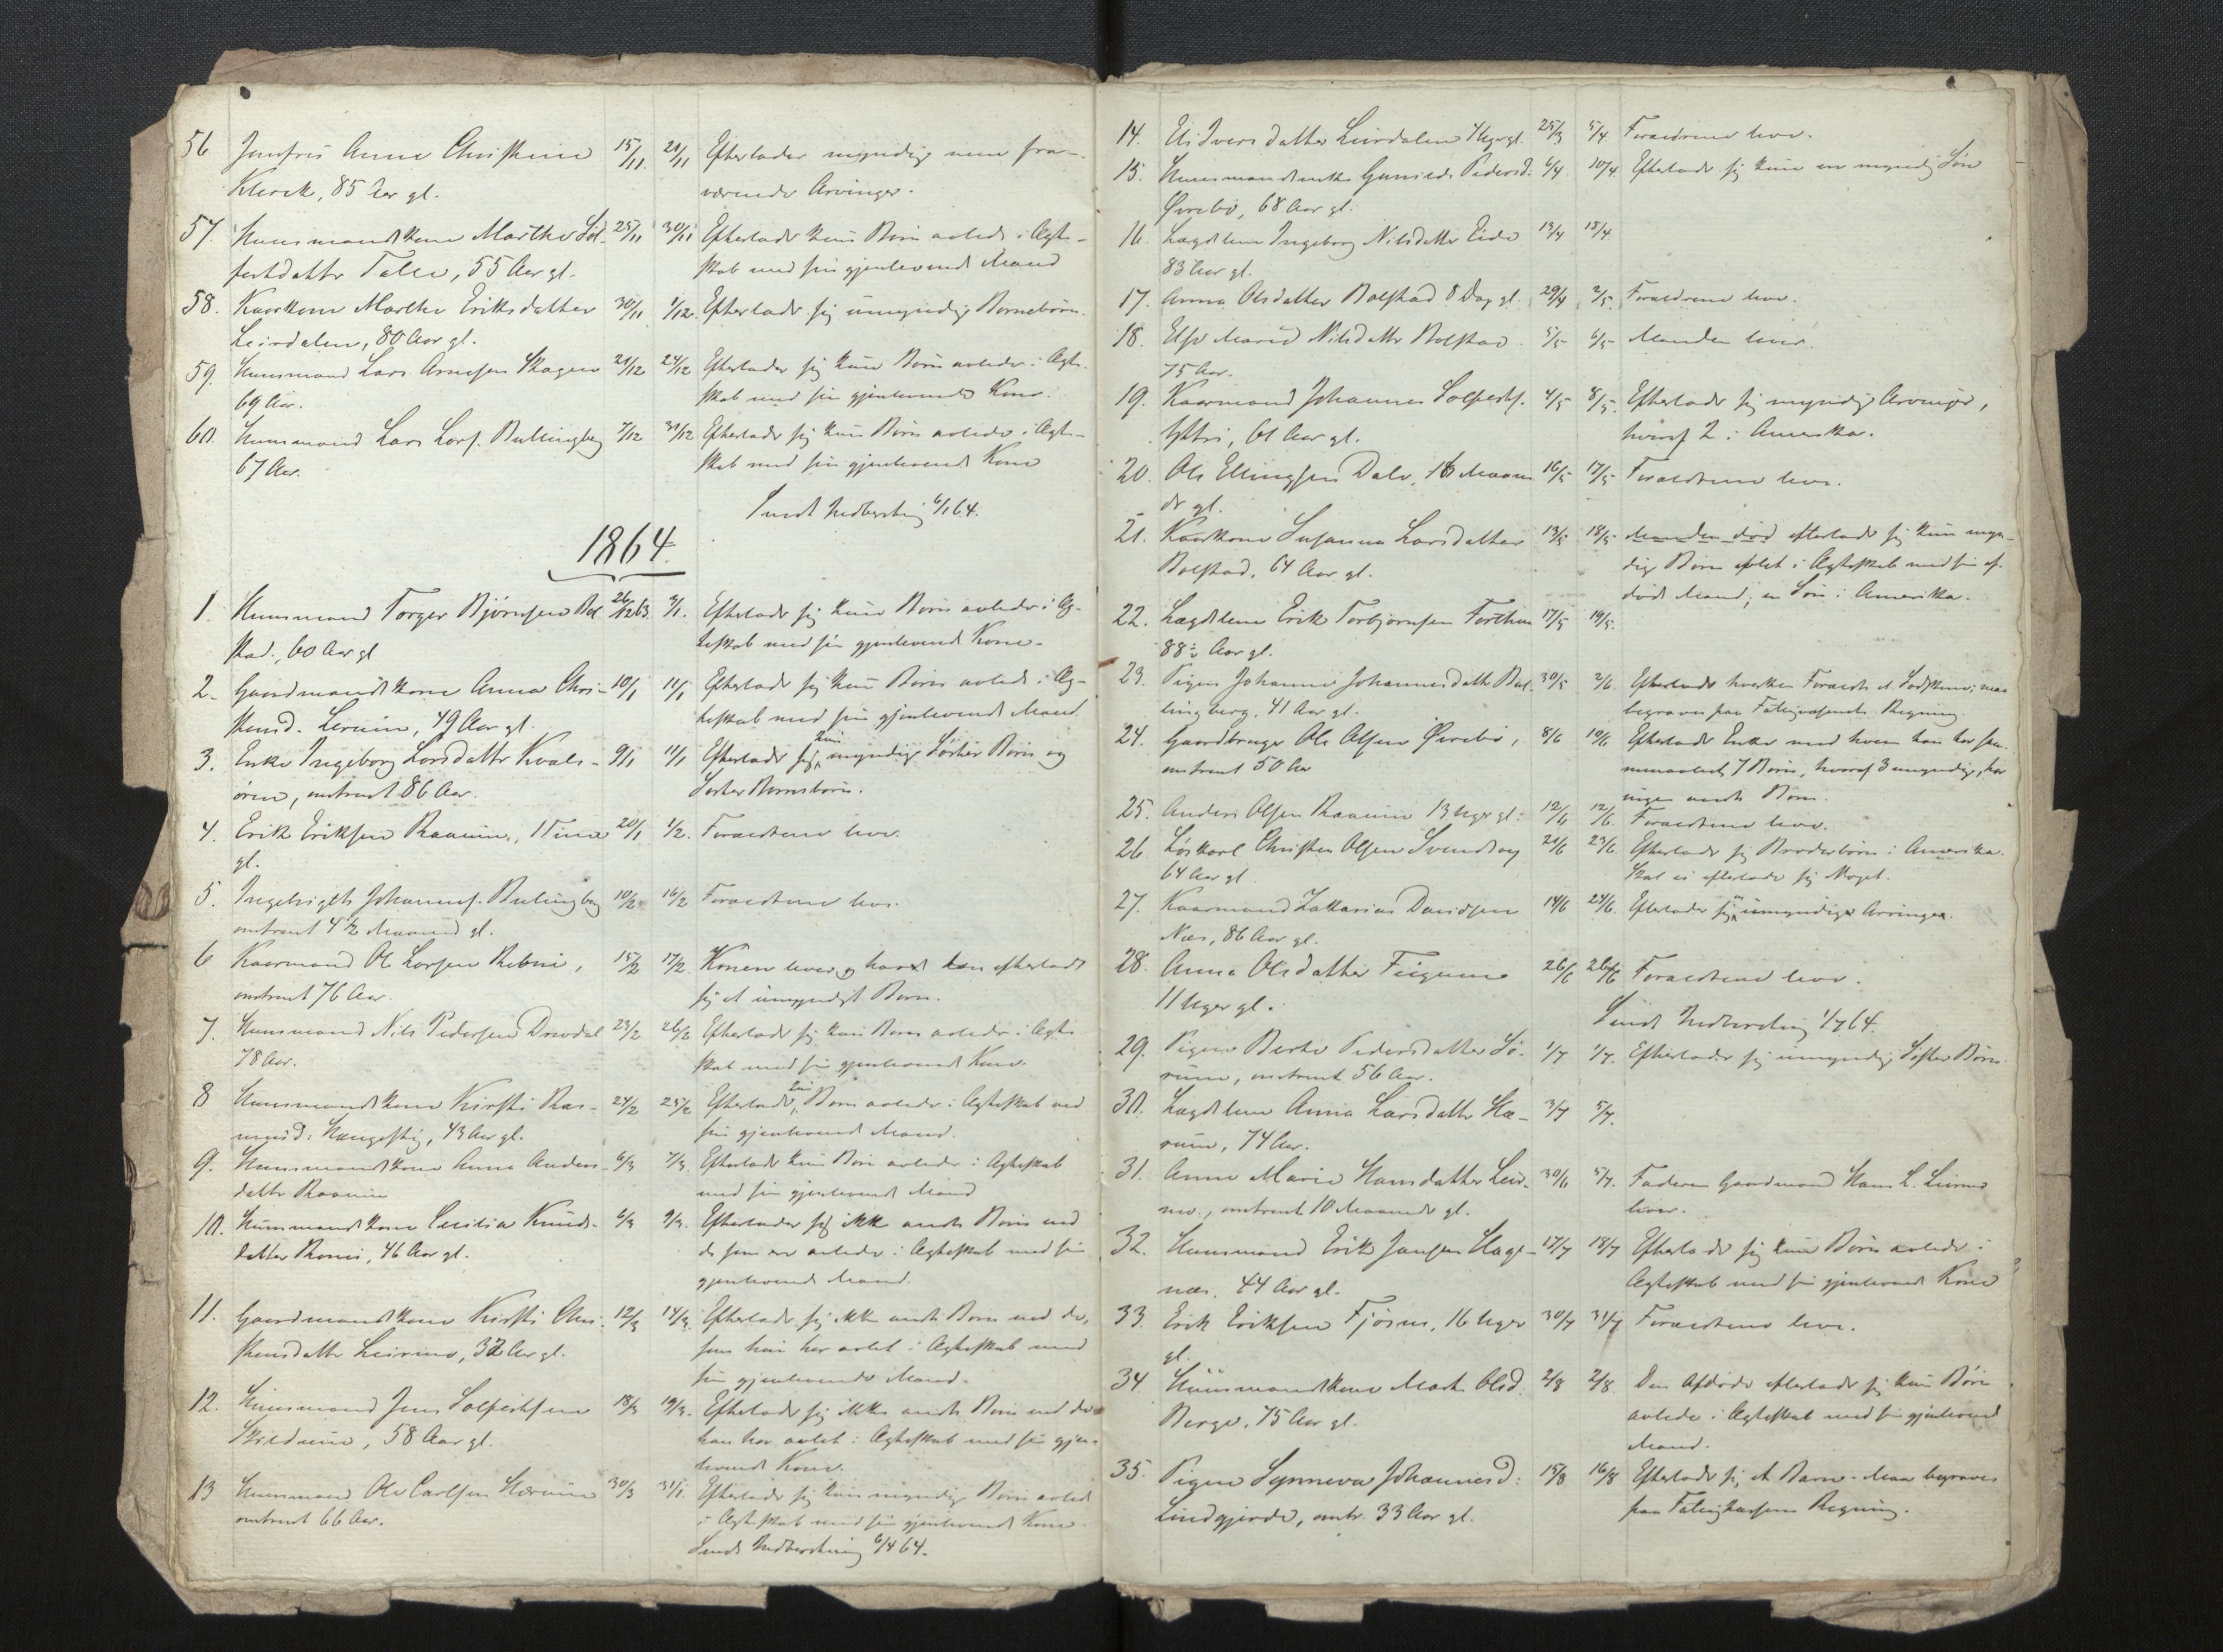 56 Jomfru Anne Christine 15/11 21/11 Efterlader myndige men fra-
Klerck, 85 Aar gl. værende Arvinger.
57. Huusmandskone Marthe Sol- 25/11 30/11 Efterlader kun Børn avlede i Ægte-
festdatter 55 Aar gl. skab med sin gjenlevende Mand
58. Kaarkone Marthe Eriksdatter 30/11 1/12 Efterlader sig umyndige Børnebørn.
Leirdalen, 80 Aar gl.
59. Huusmand Lars Arnesen Skagen 21/12 24/12 Efterlader sig kun Børn avlede i Ægte-
69 Aar. skab med sin gjenlevende Kone.
60. Huusmand Lars Lars. Bullingberg 7/12 31/12 Efterlader sig kun Børn avlede i Ægte-
67 Aar. skab med sin gjenlevende Kone
Sendt Indberetning 6/1 64.
1864.
1. Huusmand Torger Bjørnsen Bol- 26/12 63 3/1. Efterlader sig kun Børn avlede i Æg-
stad, 60 Aar gl teskab med sin gjenlevende Kone.
2. Gaardmandskone Anna Chri- 10/1 11/1 Efterlader sig kun Børn avlede i Æg-
stensd. 49 Aar gl. teskab med sin gjenlevende Mand.
3. Enke Ingeborg Larsdatter Kvals- 9/1 11/1 Efterlader sig kun myndige Søster Børn og
øren, omtrent 86 Aar. Søster Børnebørn.
4. Erik Eriksen 1 Time 20/1 1/2. Forældrene leve.
gl.
5. Ingebrigt Johannes. Bulingberg 10/2 16/2 Forældrene leve.
omtrent 4 1/2 Maaned gl.
6 Kaarmand Ole Larsen 15/2 17/2 Konen lever og han efterlader
omtrent 76 Aar. sig et umyndigt Barn.
7. Huusmand Nils Pedersen 23/2 26/2 Efterlader sig kun Børn avlede i Ægte
78 Aar. skab med sin gjenlevende Kone.
8 Huusmandskone Kirsti Ras- 24/2 25/2 Efterlader kun Børn avlede i Ægteskab med
musd: Haugestig, 43 Aar gl. sin gjenlevende Mand.
9. Huusmandskone Anna Anders- 6/3 7/3. Efterlader kun Børn avlede i Ægteskab
datter med sin gjenlevende Mand
10. Huusmandskone Cecilia Knuds- 6/3 9/3. Efterlader sig ikke andre Børn end
datter 46 Aar gl. de som er avlede i Ægteskab med sin
gjenlevende Mand.
11. Gaardmandskone Kirsti Chri- 12/3 14/3. Efterlader sig ikke andre Børn end de,
stensdatter 32 Aar gl. som hun har avlet i Ægteskab med
sin gjenlevende Mand.
12. Huusmand Jens Solfestsen 18/3 19/3. Efterlader sig ikke andre Børn end de
58 Aar gl. han har avlet i Ægteskab med sin gjen-
levende Kone.
13 Huusmand Ole Carlsen 30/3 31/ Efterlader sig kun myndige Børn avlede
omtrent 66 Aar. i Ægteskab med sin gjenlevende Kone.
Sendt Indberetning 6/4 64.
14. Eli Iversdatter Leirdalen 4 Uger gl. 25/3 5/4 Forældrene leve.
15. Huusmandsenke Gunild Pedersd. 6/4 10/4. Efterlader sig kun en myndig Søn
Øvrebø, 68 Aar gl.
16. Lægdslem Ingeborg Nilsdatter Eide 13/4 18/4.
83 Aar gl.
17. Anna Olsdatter Bolstad 8 Dag gl. 29/4 2/5. Forældrene leve.
18. Else Marie Nilsdatter Bolstad. 5/5 6/5 Manden lever.
75 Aar.
19. Kaarmand Johannes Solfests. 4/5 8/5. Efterlader sig myndige Arvinger,
61 Aar gl. hvoraf 2 i Amerika.
20. Ole Ellingsen Dale, Maane 16/5 17/5 Forældrene leve.
der gl.
21. Kaarkone Susanna Larsdatter 13/5 18/5 Manden død efterlader sig kun myn-
Bolstad, 64 Aar gl. dige Børn avlet i Ægteskab med sin af-
døde Mand, en Søn i Amerika.
22. Lægdslem Erik Torbjørnsen Forthun 17/5 19/5.
88 Aar gl.
23. Pigen Johanne Johannesdatter Bul- 30/5 2/6. Efterlader hverken Forældre el. Sødskende; maa
lingberg, 41 Aar gl. begraves paa Fatigvæsenets Regning.
24. Gaardbruger Ole Olsen Øvrebø, 8/6 10/6 Efterlader Enke med hvem han har sam-
omtrent 50 Aar menavlet 7 Børn, hvoraf 3 myndige, har
ingen andre Børn.
25. Anders Olsen 13 Uger gl: 12/6 12/6. Forældrene leve.
26 Løskarl Christen Olsen 21/6 23/6. Efterlader sig Broderbørn i Amerika.
64 Aar gl Skal ei efterlade sig Noget.
27. Kaarmand Zakarias Davidsen 14/6 24/6. Efterlader sig umyndige Arvinger.
Næs, 86 Aar gl.
28. Anna Olsdatter 26/6 26/6 Forældrene leve.
11 Uger gl.
Sendt Indberetning 1/7 64.
29. Pigen Berte Pedersdatter Sø- 1/7 1/7. Efterlader sig umyndige Søster Børn.
rum, omtrent 56 Aar.
30. Lægdslem Anna Larsdatter Hæ- 3/7 5/7.
rum, 74 Aar.
31. Anne Marie Hansdatter Leir- 30/6 5/7. Faderen Gaardmand Hans L. Leirmo
mo, omtrent 10 Maaneder gl. lever.
32. Huusmand Erik Jansen Hage- 17/7 18/7 Efterlader sig kun Børn avlede i
næs, 44 Aar gl. Ægteskab med sin gjenlevende Kone
33. Erik Eriksen Fjøsne, 16 Uger 30/7 31/7 Forældrene leve.
gl.
34. Huusmandskone Marte Olsd. 2/8 2/8. Den Afdøde efterlader sig kun Børn
Berge, 75 Aar gl. avlede i Ægteskab med sin gjenlevende
Mand.
35. Pigen Synneva Johannesd: 15/8 16/8 Efterlader sig et Barn. Maa begraves
Lindgjerde, omtr. 33 Aar gl. paa Fatigkassens Regning.